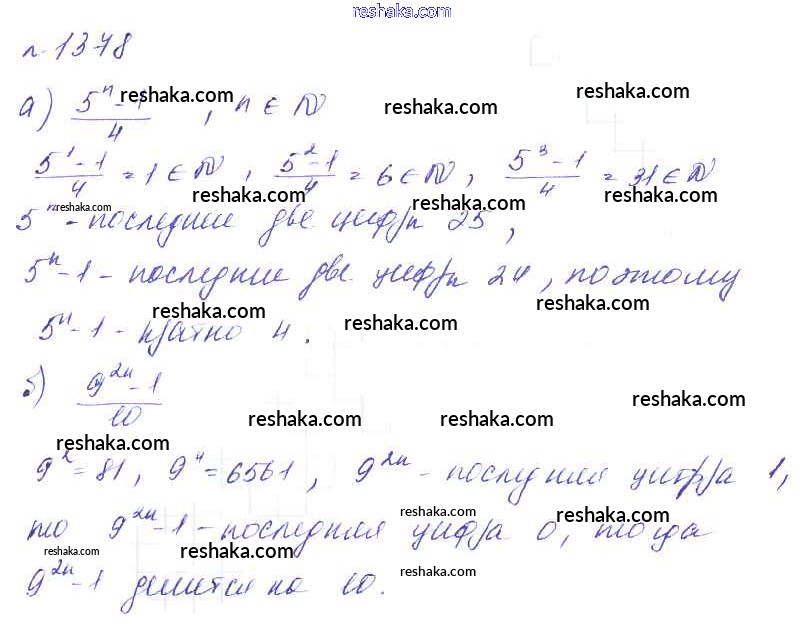 reshaka.com
n. 1378
reshaka.com
а) (5^n - 1)/4 , n ∈ N
reshaka.com reshaka.com
(5^1 - 1)/4 = 1 ∈ N, (5^2 - 1)/4 = 6 ∈ N, (5^3 - 1)/4 = 31 ∈ N
reshaka.com reshaka.com reshaka.com reshaka.com
5^n - последние две цифры 25,
5^n - 1 - последние две цифры 24, поэтому
reshaka.com reshaka.com reshaka.com
5^n - 1 - кратно 4.
б) (9^{2n} - 1)/10
reshaka.com reshaka.com reshaka.com reshaka.com
9^2 = 81, 9^4 = 6561, 9^{2n} - последняя цифра 1,
reshaka.com reshaka.com
то 9^{2n} - 1 - последняя цифра 0, тогда
reshaka.com reshaka.com reshaka.com
9^{2n} - 1 делится на 10.